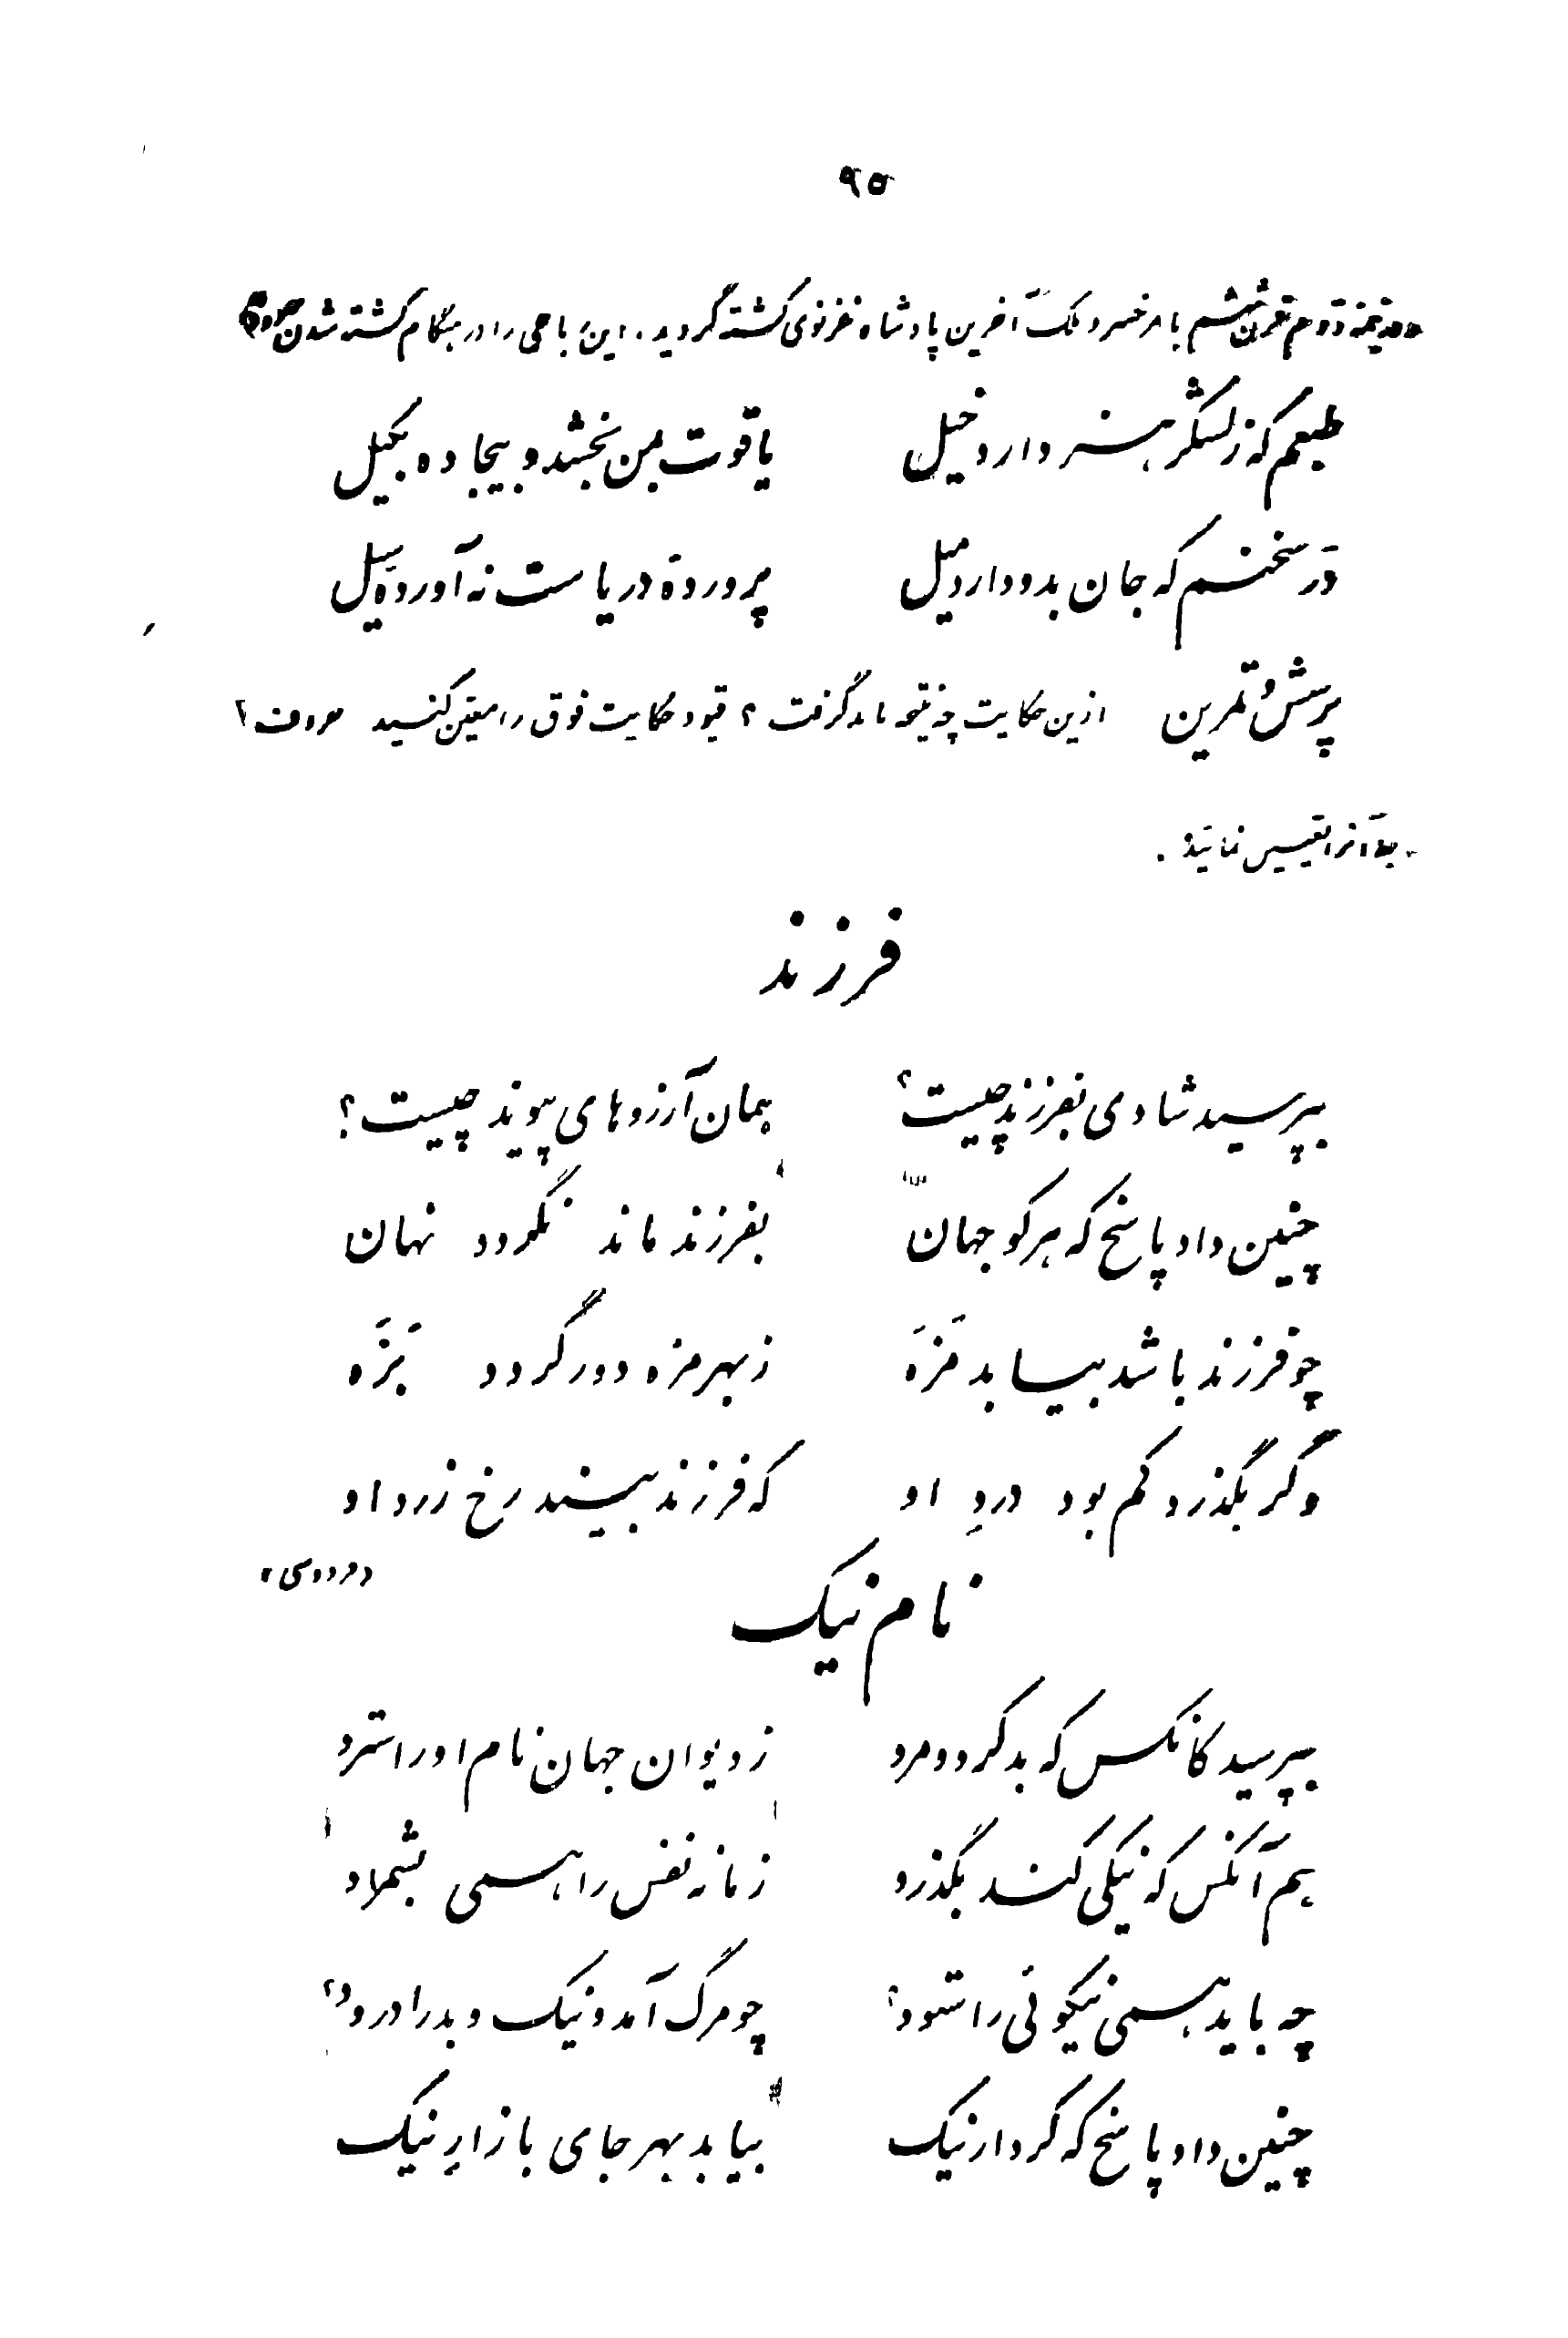 ۹۵
در نیمهٔ دوم قرن ششم بامر خسرو ملک آخرین پادشاه غزنوی کشته گردید. این رباعی را در هنگام کشته شدن
طبعم که ز لشکر هنر دارد خیل    یاقوت بمن بخشد و بیجاده بکیل
دُر سخنم که جان بدو دارد میل    پروردهٔ دریاست نه آوردهٔ سیل
پرسش و تمرین    ازین حکایت چه نتیجه باید گرفت؟ قیود حکایت فوق را معین کنید حروف
آنرا تعیین نمائید.
فرزند
بپرسید شادی بفرزند چیست؟    همان آرزوهای پیوند چیست؟
چنین داد پاسخ که هر کو جهان    بفرزند ماند نگردد نهان
چو فرزند باشد بیابد مَزَه    ز بهر مزه دور گردد بَزَه
وگر بگذرد کم بود دردِ او    که فرزند بیند رخ زرد او
«فردوسی»
نام نیک
بپرسید کانکس که بد کرد و مرد    ز دیوان جهان نام او را سترد
هم آنکس که نیکی کند بگذرد    زمانه نفس را همی بشمرد
چه باید همی نیکوئی را ستود؟    چو مرگ آمد و نیک و بد را درود؟
چنین داد پاسخ که کردار نیک    بیابد بهر جای بازارِ نیک